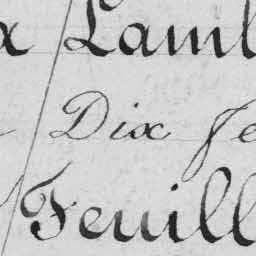 x Lamb
Dix Fe
Feuill